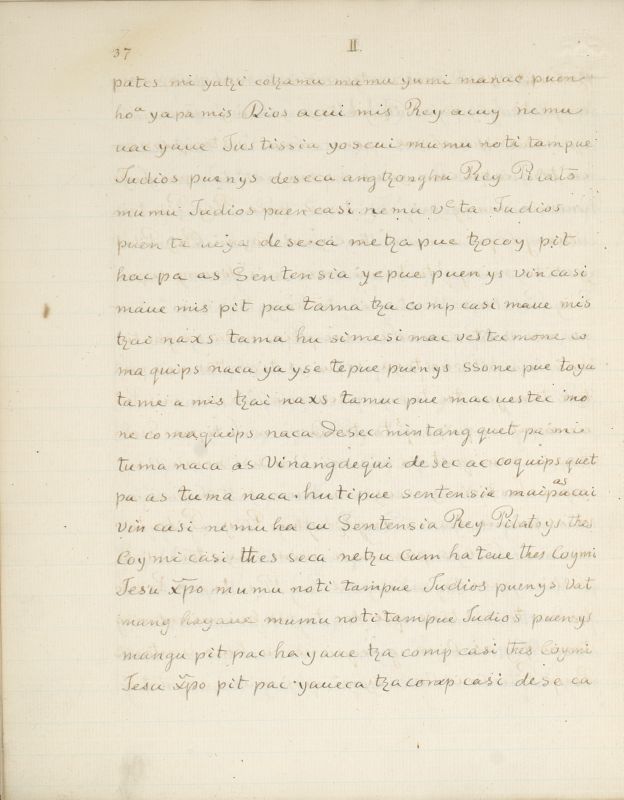 37 II.
pates mi yatzi cotzamu mumu yumi manac puen
ho^a yapa mis Dios acui mis Rey acuy nemu
uac yaue Justissia yoscui mumu noti tampue
Judios puenys deseca angtzonghu Rey Pilato
mumu Judios puen casi nemu v^c ta Judios
puen ta ueya dese ca metza pue tzocoy pit
hac pa as Sentensia yepue puen ys vin casi
maue mis pit pac tama tza comp casi maue mis
tzai naxs tama hu simesi mac ves tec mone co
ma quips naca ya yse tepue puenys ssone pue toya
tame a mis tzai naxs tamuc pue mac uestec mo
ne comaquips naca Desec mintang quet pa mi
tuma naca as Vinangdequi desec ac coquips quet
pa as tuma naca. hutipue sentensia muipa as cui
vin casi nemu ha cu Sentensia Rey Pilato ys thes
Coymi casi thes seca netzu Cum ha teue thes Coymi
Jesu xp̃o mumu noti tampue Judios puenys vat
mang hayaue mumu noti tampue Judios puenys
mangu pit pac ha yaue tza comp casi thes Coymi
Jesu xp̃o pit pac yaueca tza comp casi dese ca